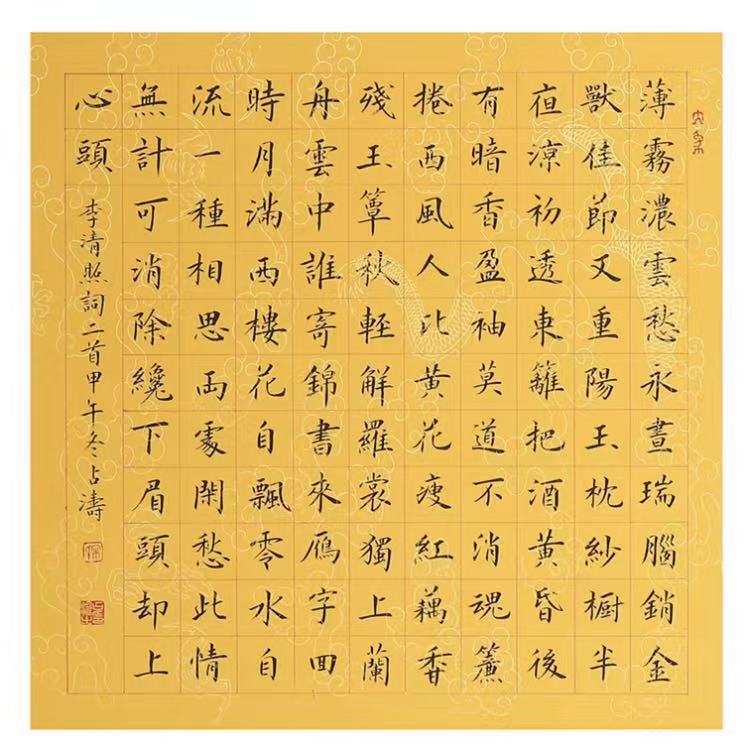 薄霧濃雲愁永晝瑞腦銷金
獸佳節又重陽玉枕紗橱半
夜涼初透東籬把酒黃昏後
有暗香盈袖莫道不消魂簾
捲西風人比黃花瘦紅藕香
殘玉簟秋輕解羅裳獨上蘭
舟雲中誰寄錦書來鴈字回
時月滿西樓花自飄零水自
流一種相思兩處閑愁此情
無計可消除纔下眉頭却上
心頭
李清照詞二首甲午冬占濤